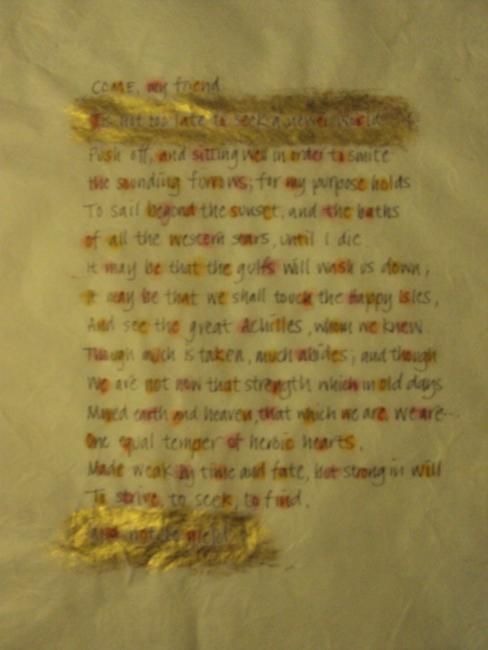 COME, my friend
'Tis not too late to seek a newer world
Push off, and sitting well in order to smite
the sounding furrows; for my purpose holds
To sail beyond the sunset, and the baths
of all the western stars, until I die
it may be that the gulfs will wash us down;
it may be that we shall touch the Happy Isles,
And see the great Achilles, whom we knew
Though much is taken, much abides; and though
We are not now that strength which in old days
Moved earth and heaven, that which we are, we are--
One equal temper of heroic hearts,
Made weak by time and fate, but strong in will
To strive, to seek, to find,
and not to yield.